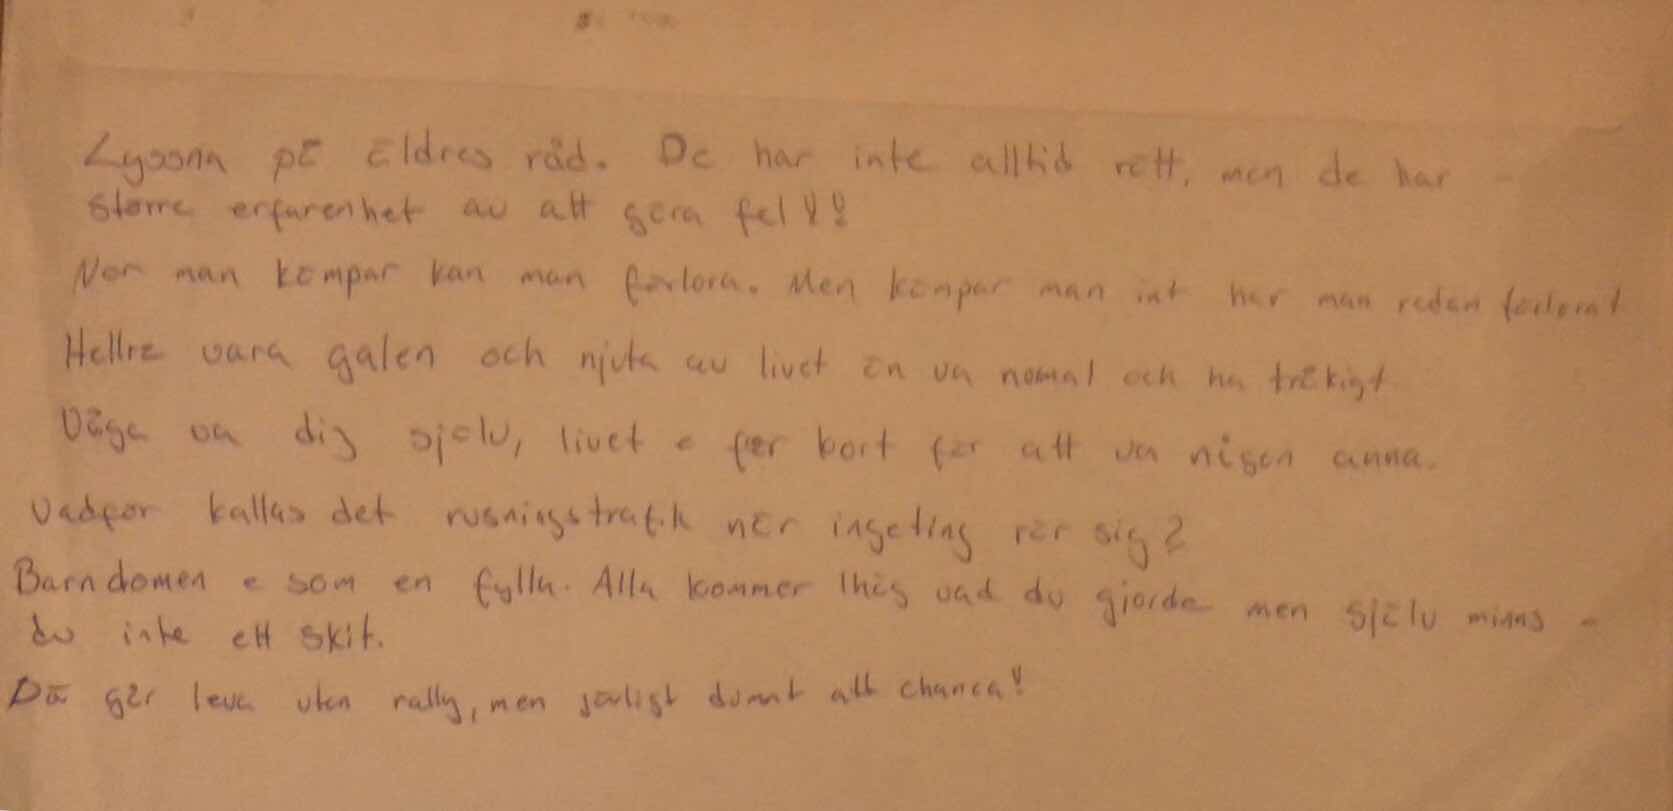 Lyssna på äldres råd. De har inte alltid rätt, men de har -
större erfarenhet av att göra fel!!
När man kämpar kan man förlora. Men kämpar man int har man redan förlorat
Hellre vara galen och njuta av livet än va nomal och ha tråkigt
Våga va dig själv, livet e för kort för att va någon anna.
Vadför kallas det rusningstrafik när ingeting rör sig?
Barndomen e som en fylla. Alla kommer ihåg vad du gjorde men själv minns -
du inte ett skit.
Då går leva utan rally, men jävligt dumt att chansa!